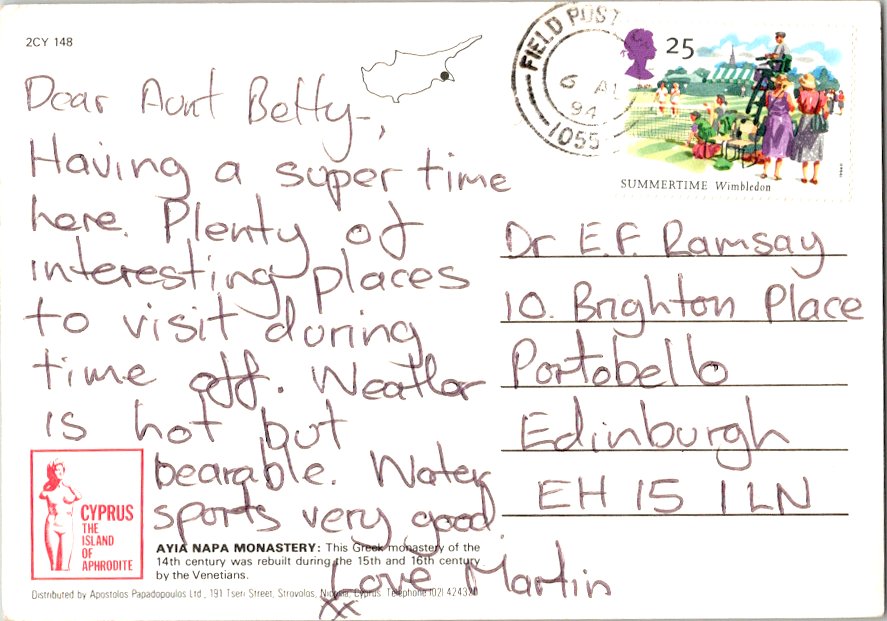 2CY 148
Dear Aunt Betty,
Having a super time
here. Plenty of
interesting places
to visit during
time off. Weather
is hot but
bearable. Water
sports very good.
Love Martin
xx
FIELD POST
6 AU
94
1055
25
SUMMERTIME Wimbledon
Dr E.F. Ramsay
10. Brighton Place
Portobello
Edinburgh
EH 15 1LN
CYPRUS
THE
ISLAND
OF
APHRODITE
AYIA NAPA MONASTERY: This Greek monastery of the
14th century was rebuilt during the 15th and 16th century
by the Venetians.
Distributed by Apostolos Papadopoulos Ltd., 191 Tseri Street, Strovolos, Nicosia, Cyprus Telephone (02) 424320